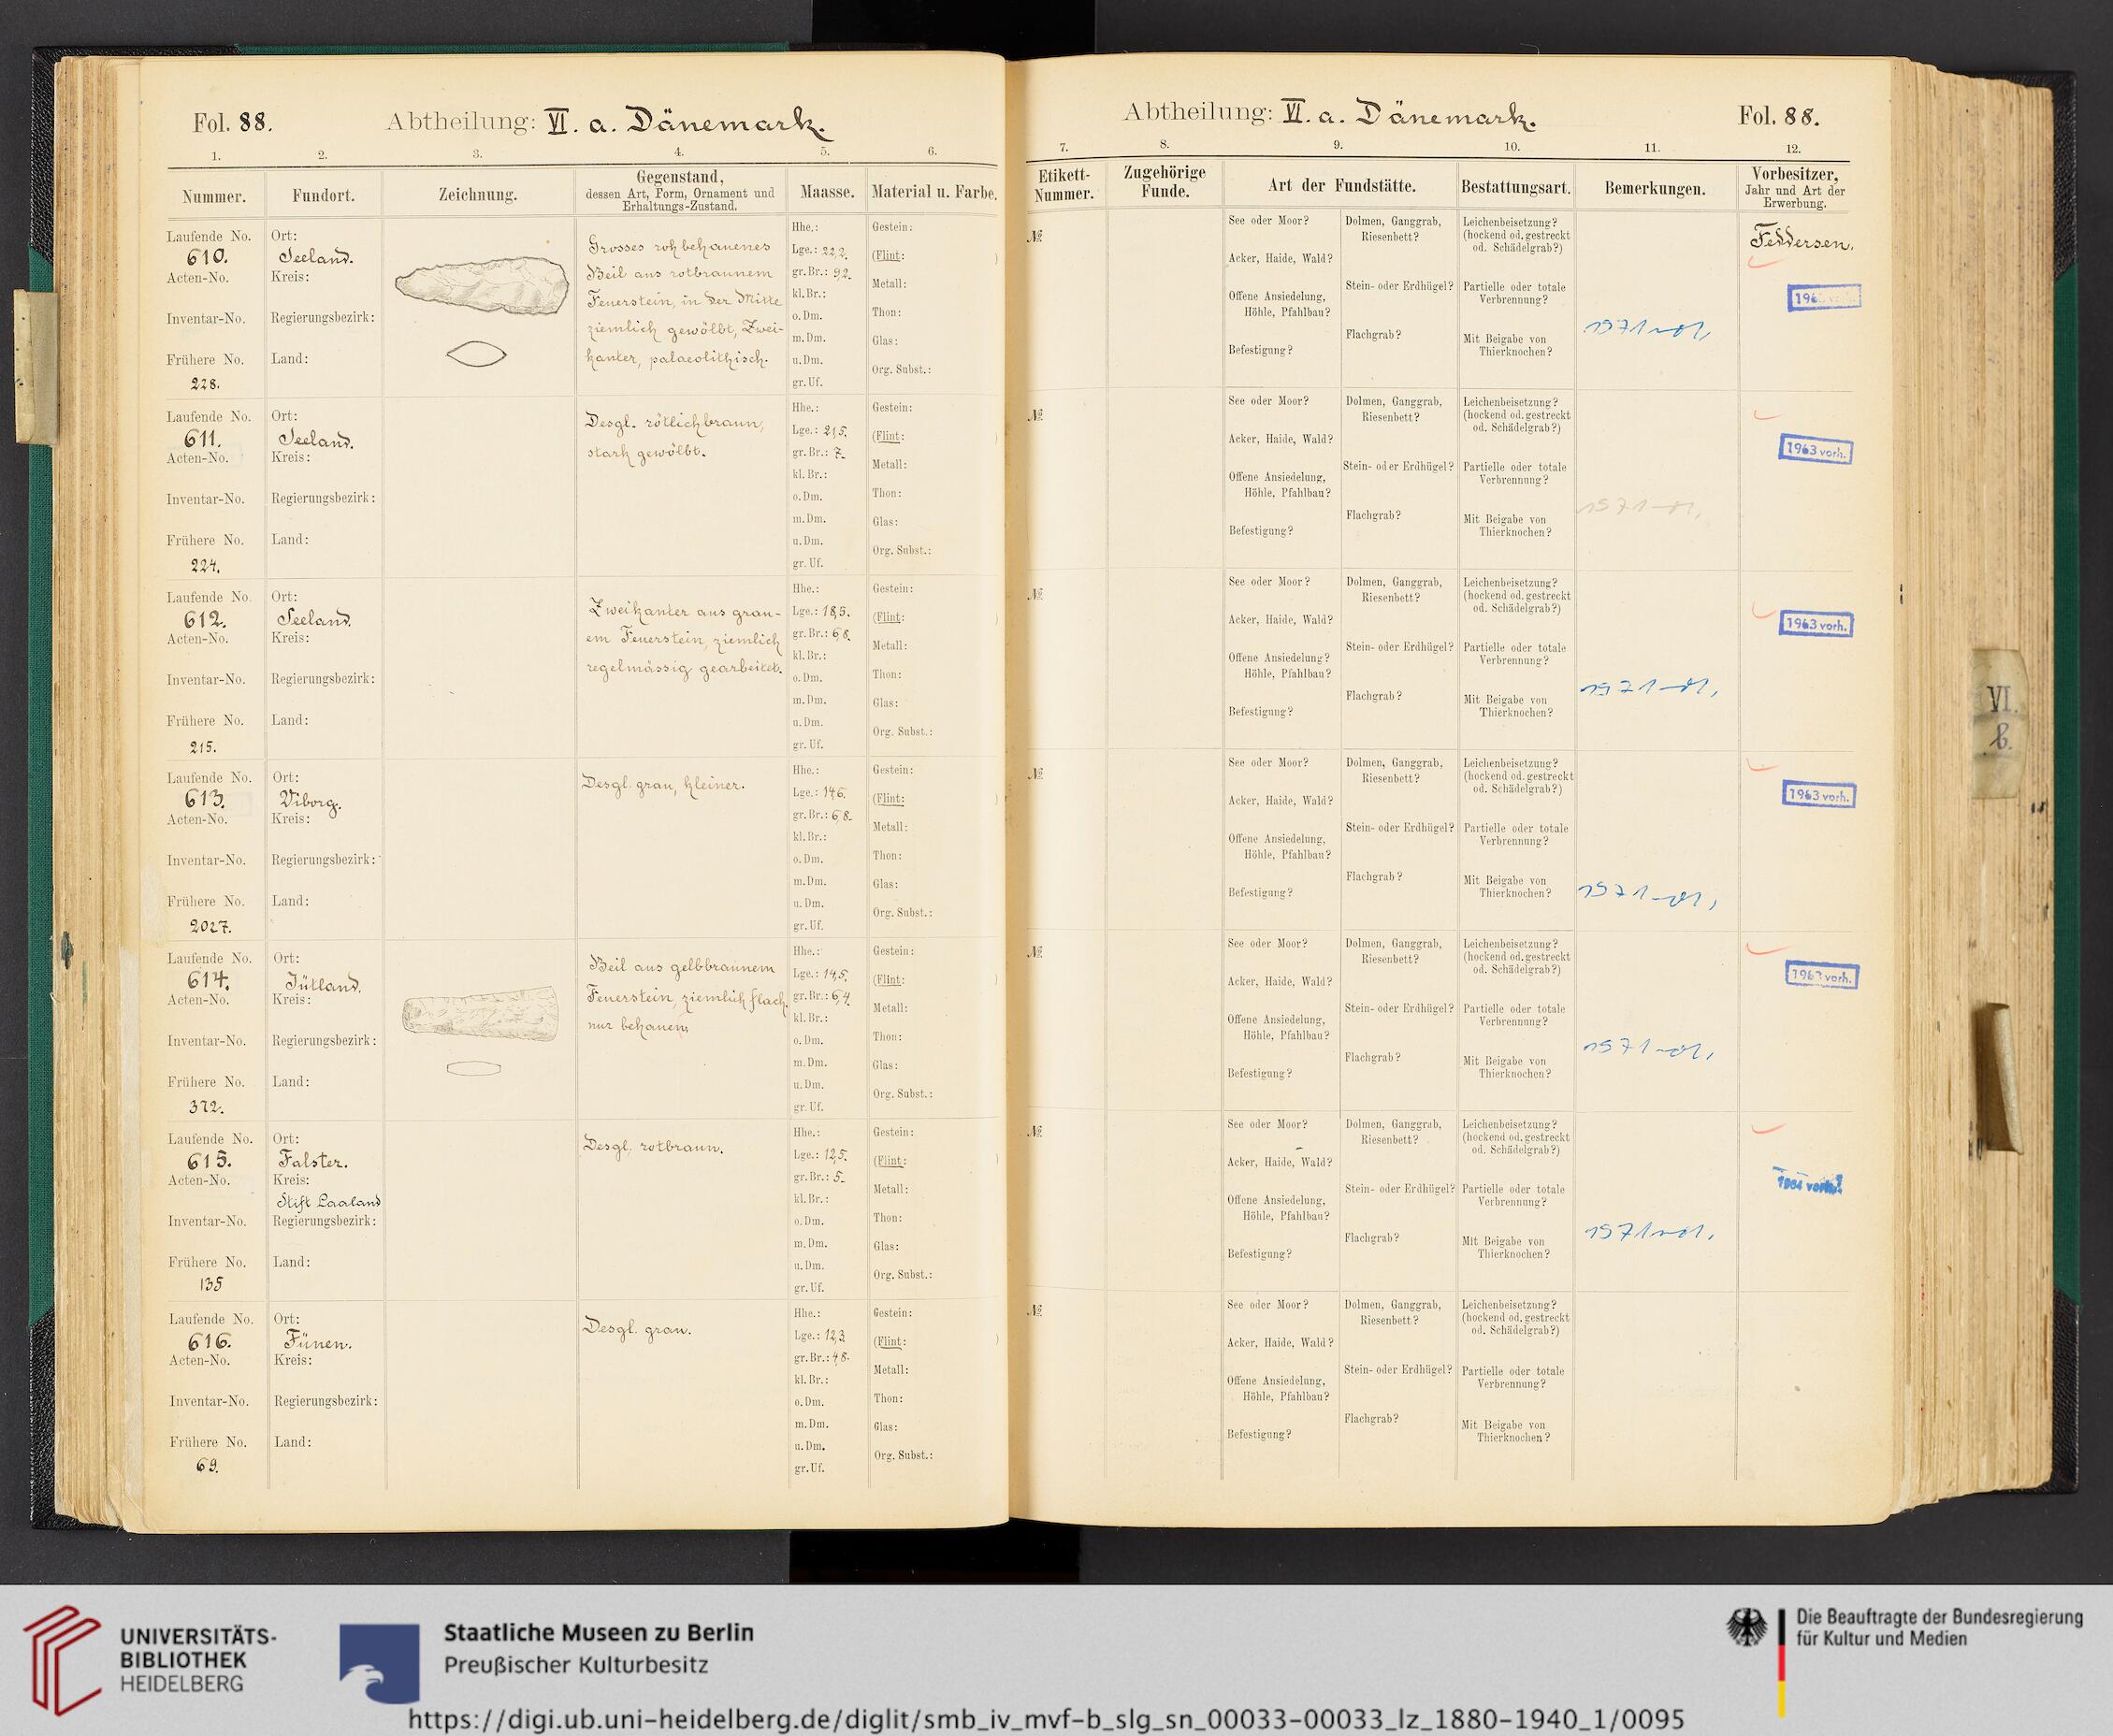 Fol. 88.
Abtheilung: VI. a. Dänemark.
1. 2. 3. 4. 5. 6.
Nummer.
Fundort.
Zeichnung.
Gegenstand,
dessen Art, Form, Ornament und
Erhaltungs-Zustand.
Maasse.
Material u. Farbe.
Laufende No.
610.
Acten-No.
Inventar-No.
Frühere No.
228.
Ort:
Seeland.
Kreis:
Regierungsbezirk:
Land:
Grosses roh behauenes
Beil aus rotbraunem
Feuerstein, in der Mitte
ziemlich gewölbt, Zwei-
kanter, palaeolithisch.
Hhe.:
Lge.: 22,2.
gr. Br.: 9,2.
kl. Br.:
o. Dm.
m. Dm.
u. Dm.
gr. Uf.
Gestein:
(Flint: )
Metall:
Thon:
Glas:
Org. Subst.:
Laufende No.
611.
Acten-No.
Inventar-No.
Frühere No.
224.
Ort:
Seeland.
Kreis:
Regierungsbezirk:
Land:
Desgl. rötlichbraun,
stark gewölbt.
Hhe.:
Lge.: 21,5.
gr. Br.: 7.
kl. Br.:
o. Dm.
m. Dm.
u. Dm.
gr. Uf.
Gestein:
(Flint: )
Metall:
Thon:
Glas:
Org. Subst.:
Laufende No.
612.
Acten-No.
Inventar-No.
Frühere No.
215.
Ort:
Seeland.
Kreis:
Regierungsbezirk:
Land:
Zweikanter aus grau-
em Feuerstein, ziemlich
regelmässig gearbeitet.
Hhe.:
Lge.: 18,5.
gr. Br.: 6,8.
kl. Br.:
o. Dm.
m. Dm.
u. Dm.
gr. Uf.
Gestein:
(Flint: )
Metall:
Thon:
Glas:
Org. Subst.:
Laufende No.
613.
Acten-No.
Inventar-No.
Frühere No.
2027.
Ort:
Viborg.
Kreis:
Regierungsbezirk:
Land:
Desgl. grau, kleiner.
Hhe.:
Lge.: 14,6.
gr. Br.: 6,8.
kl. Br.:
o. Dm.
m. Dm.
u. Dm.
gr. Uf.
Gestein:
(Flint: )
Metall:
Thon:
Glas:
Org. Subst.:
Laufende No.
614.
Acten-No.
Inventar-No.
Frühere No.
372.
Ort:
Jütland.
Kreis:
Regierungsbezirk:
Land:
Beil aus gelbbraunem
Feuerstein, ziemlich flach,
nur behauen.
Hhe.:
Lge.: 14,5.
gr. Br.: 6,4.
kl. Br.:
o. Dm.
m. Dm.
u. Dm.
gr. Uf.
Gestein:
(Flint: )
Metall:
Thon:
Glas:
Org. Subst.:
Laufende No.
615.
Acten-No.
Inventar-No.
Frühere No.
135
Ort:
Falster.
Kreis:
Stift Laaland
Regierungsbezirk:
Land:
Desgl. rotbraun.
Hhe.:
Lge.: 12,5.
gr. Br.: 5.
kl. Br.:
o. Dm.
m. Dm.
u. Dm.
gr. Uf.
Gestein:
(Flint: )
Metall:
Thon:
Glas:
Org. Subst.:
Laufende No.
616.
Acten-No.
Inventar-No.
Frühere No.
69.
Ort:
Fünen.
Kreis:
Regierungsbezirk:
Land:
Desgl. grau.
Hhe.:
Lge.: 12,3
gr. Br.: 4,8.
kl. Br.:
o. Dm.
m. Dm.
u. Dm.
gr. Uf.
Gestein:
(Flint: )
Metall:
Thon:
Glas:
Org. Subst.:
Abtheilung: VI. a. Dänemark.
Fol. 88.
7. 8. 9. 10. 11. 12.
Etikett-
Nummer.
Zugehörige
Funde.
Art der Fundstätte.
Bestattungsart.
Bemerkungen.
Vorbesitzer,
Jahr und Art der
Erwerbung.
№
See oder Moor?
Acker, Haide, Wald?
Offene Ansiedelung,
Höhle, Pfahlbau?
Befestigung?
Dolmen, Ganggrab,
Riesenbett?
Stein- oder Erdhügel?
Flachgrab?
Leichenbeisetzung?
(hockend od. gestreckt
od. Schädelgrab?)
Partielle oder totale
Verbrennung?
Mit Beigabe von
Thierknochen?
Feddersen.
№
See oder Moor?
Acker, Haide, Wald?
Offene Ansiedelung,
Höhle, Pfahlbau?
Befestigung?
Dolmen, Ganggrab,
Riesenbett?
Stein- oder Erdhügel?
Flachgrab?
Leichenbeisetzung?
(hockend od. gestreckt
od. Schädelgrab?)
Partielle oder totale
Verbrennung?
Mit Beigabe von
Thierknochen?
1963 vorh.
№
See oder Moor?
Acker, Haide, Wald?
Offene Ansiedelung?
Höhle, Pfahlbau?
Befestigung?
Dolmen, Ganggrab,
Riesenbett?
Stein- oder Erdhügel?
Flachgrab?
Leichenbeisetzung?
(hockend od. gestreckt
od. Schädelgrab?)
Partielle oder totale
Verbrennung?
Mit Beigabe von
Thierknochen?
1963 vorh.
№
See oder Moor?
Acker, Haide, Wald?
Offene Ansiedelung,
Höhle, Pfahlbau?
Befestigung?
Dolmen, Ganggrab,
Riesenbett?
Stein- oder Erdhügel?
Flachgrab?
Leichenbeisetzung?
(hockend od. gestreckt
od. Schädelgrab?)
Partielle oder totale
Verbrennung?
Mit Beigabe von
Thierknochen?
1963 vorh.
№
See oder Moor?
Acker, Haide, Wald?
Offene Ansiedelung,
Höhle, Pfahlbau?
Befestigung?
Dolmen, Ganggrab,
Riesenbett?
Stein- oder Erdhügel?
Flachgrab?
Leichenbeisetzung?
(hockend od. gestreckt
od. Schädelgrab?)
Partielle oder totale
Verbrennung?
Mit Beigabe von
Thierknochen?
1963 vorh.
№
See oder Moor?
Acker, Haide, Wald?
Offene Ansiedelung,
Höhle, Pfahlbau?
Befestigung?
Dolmen, Ganggrab,
Riesenbett?
Stein- oder Erdhügel?
Flachgrab?
Leichenbeisetzung?
(hockend od. gestreckt
od. Schädelgrab?)
Partielle oder totale
Verbrennung?
Mit Beigabe von
Thierknochen?
1964 vorh.
№
See oder Moor?
Acker, Haide, Wald?
Offene Ansiedelung,
Höhle, Pfahlbau?
Befestigung?
Dolmen, Ganggrab,
Riesenbett?
Stein- oder Erdhügel?
Flachgrab?
Leichenbeisetzung?
(hockend od. gestreckt
od. Schädelgrab?)
Partielle oder totale
Verbrennung?
Mit Beigabe von
Thierknochen?
VI.
b.
UNIVERSITÄTS-
BIBLIOTHEK
HEIDELBERG
Staatliche Museen zu Berlin
Preußischer Kulturbesitz
Die Beauftragte der Bundesregierung
für Kultur und Medien
https://digi.ub.uni-heidelberg.de/diglit/smb_iv_mvf-b_slg_sn_00033-00033_lz_1880-1940_1/0095